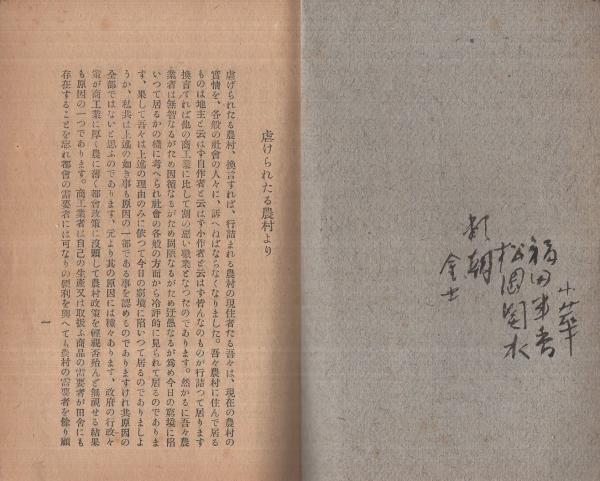 小華
福田半香
松岡関水
顔朝
金士
虐けられたる農村より
虐げられたる農村、換言すれば、行詰まれる農村の現住者たる吾々は、現在の農村の
實情を、各般の社會の人々に、訴へねばならなくなりました。吾々農村に住んで居る
ものは地主と云はず自作者と云はず小作者と云はず皆んなのものが行詰つて居ります
換言すれば他の商工業に比して割の惡い職業となつたのであります。然かるに吾々農
業者は無智なるがため因循なるがため固陋なるがため迂愚なるが爲め今日の窮境に陷
いつて居るかの樣に考へられ社會の各般の方面から冷評的に見られて居るのでありま
す、果して吾々は上述の理由のみに依つて今日の窮境に陷いつて居るのでありましよ
うか、私共は上述の如き事も原因の一部である事を認めるのでありますけれ共原因の
全部ではないと思ふのであります、元より其の原因には種々あります、政府の行政々
策が商工業に厚く農に薄く都會政策に沒頭して農村政策を輕視否殆んど無視せる結果
も原因の一つであります。商工業者は自己の生產又は取扱ふ商品の需要者が田舍にも
存在することを忘れ都會の需要者には可なりの便利を興へても農村の需要者を餘り顧
一